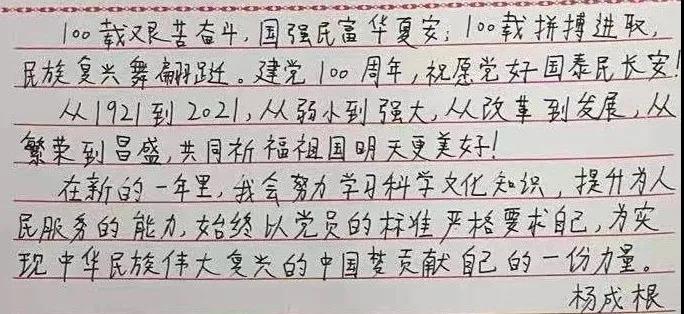 100载艰苦奋斗,国强民富华夏安;100载拼搏进取,
民族复兴舞翩跹。建党100周年,祝愿党好国泰民长安!
从1921到2021,从弱小到强大,从改革到发展,从
繁荣到昌盛,共同祈福祖国明天更美好!
在新的一年里,我会努力学习科学文化知识,提升为人
民服务的能力,始终以党员的标准严格要求自己,为实
现中华民族伟大复兴的中国梦贡献自己的一份力量。
杨成根